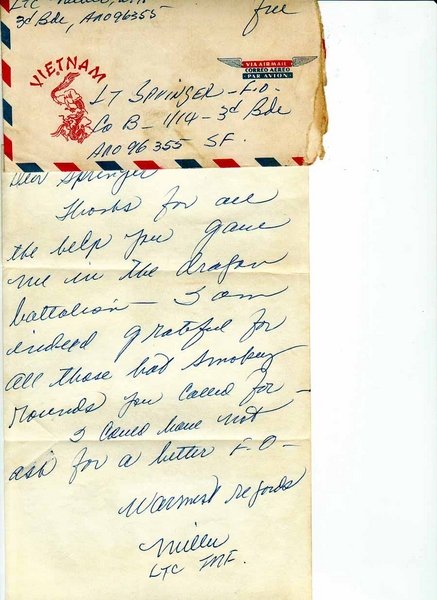 LTC Miller,
3d Bde, APO 96355
free
VIETNAM
VIA AIR MAIL
CORREO AEREO
PAR AVION
LT SPRINGER - F.O.
Co B - 1/14 - 3d Bde
APO 96355 SF.
Dear Springer
Thanks for all
the help you gave
me in the dragon
battalion - I am
indeed grateful for
all those hot smokey
rounds you called for -
I could have not
ask for a better F.O -
Warmest regards
Miller
LTC INF.